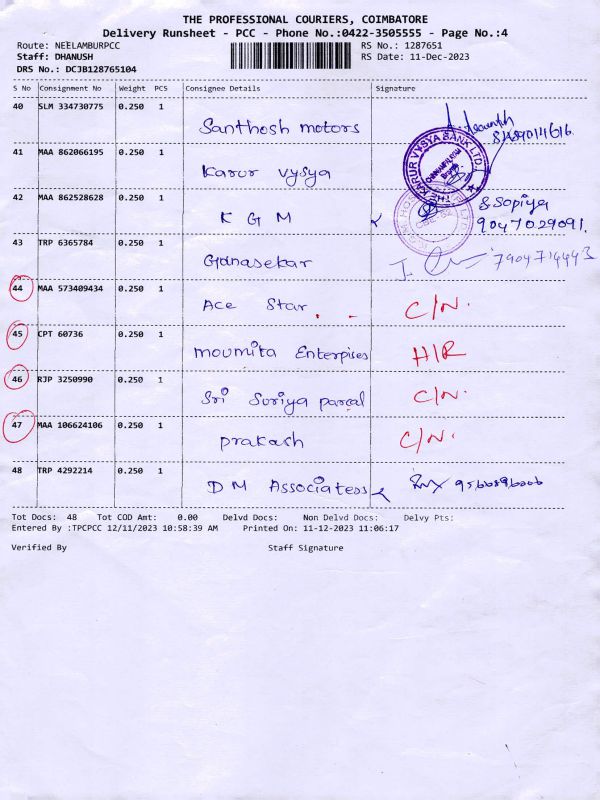 THE PROFESSIONAL COURIERS, COIMBATORE
Delivery Runsheet - PCC - Phone No.:0422-3505555 - Page No.:4
Route: NEELAMBURPCC RS No.: 1287651
Staff: DHANUSH RS Date: 11-Dec-2023
DRS No.: DCJB128765104
S No Consignment No Weight PCS Consignee Details Signature
40 SLM 334730775 0.250 1 Santhosh motors
41 MAA 862066195 0.250 1 Karur vysya
THE KARUR VYSYA BANK LTD.
42 MAA 862528628 0.250 1 K G M S Sopiya
9047029091.
43 TRP 6365784 0.250 1 Gdnasekar 7904714443
44 MAA 573409434 0.250 1 Ace Star C/N.
45 CPT 60736 0.250 1 moumita Enterpises H/R
46 RJP 3250990 0.250 1 Sri Suriya parcal C/N.
47 MAA 106624106 0.250 1 prakash C/N.
48 TRP 4292214 0.250 1 D M Associatess
Tot Docs: 48 Tot COD Amt: 0.00 Delvd Docs: Non Delvd Docs: Delvy Pts:
Entered By :TPCPCC 12/11/2023 10:58:39 AM Printed On: 11-12-2023 11:06:17
Verified By Staff Signature